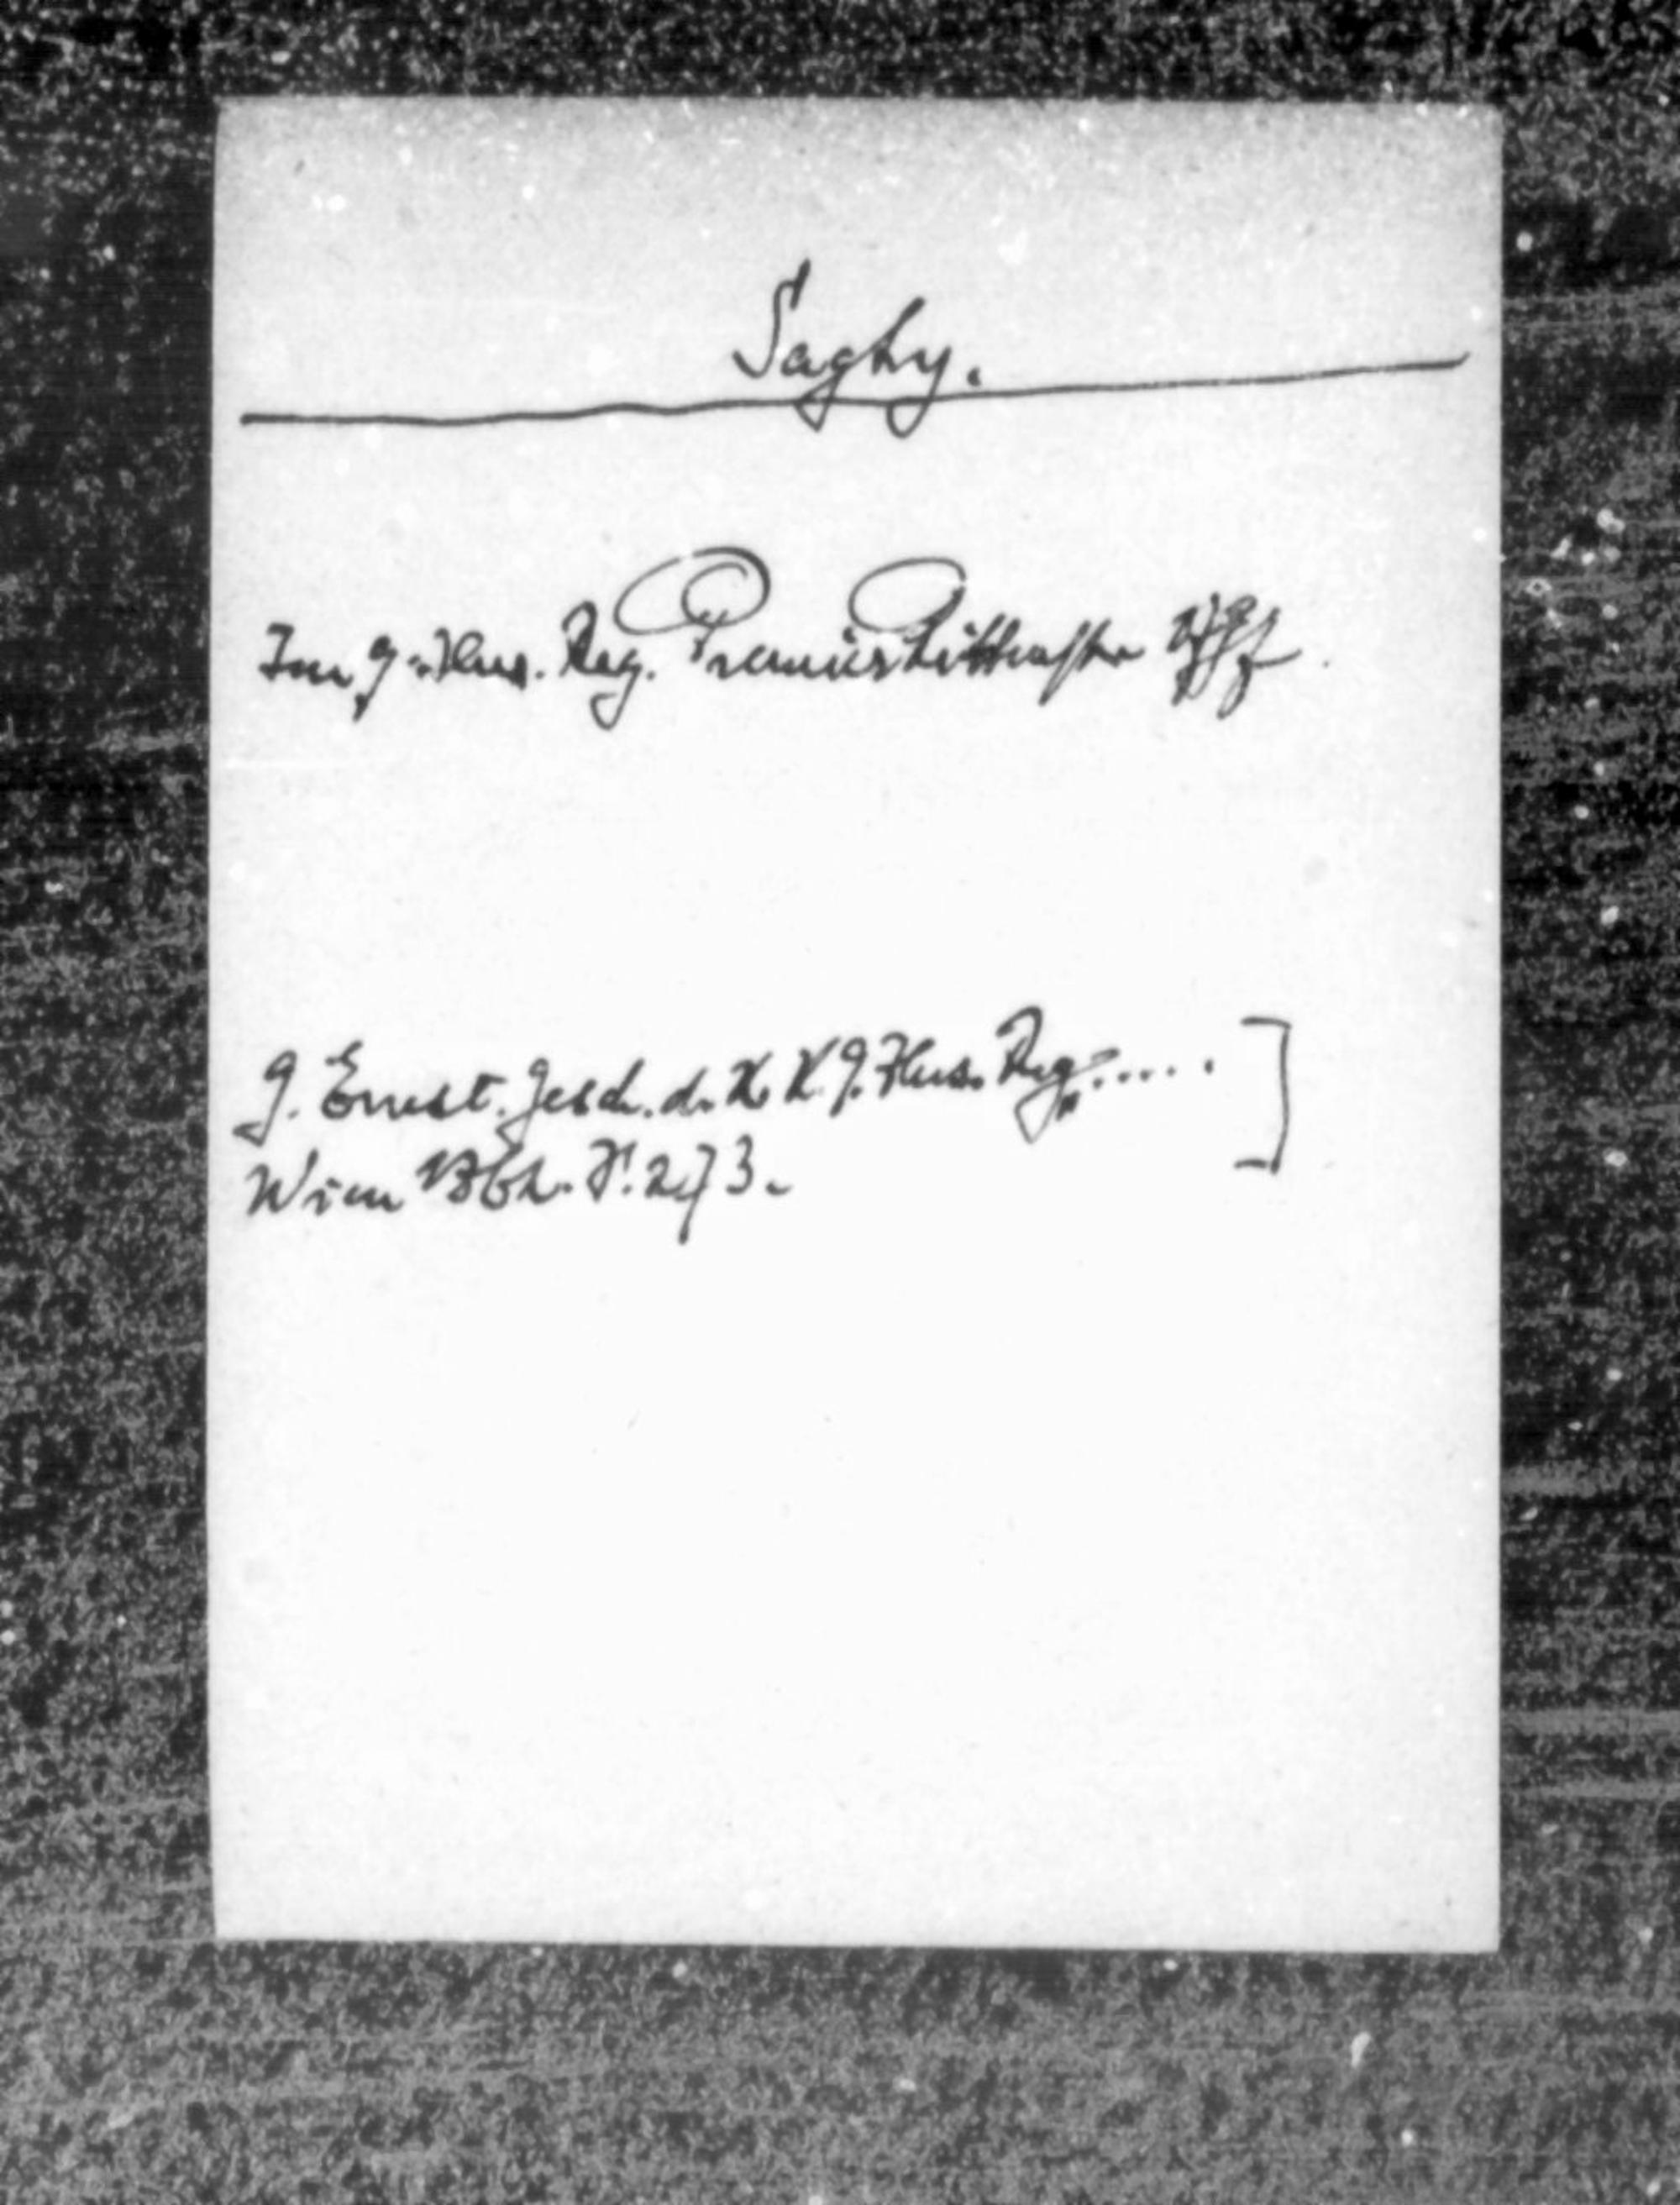 Saghy.
Im 9. Hus. Reg. Premier Rittmstr
J. Ernst. Gesch. d. K. K. 9. Hus. Reg. .....]
Wien 1862. S. 273.